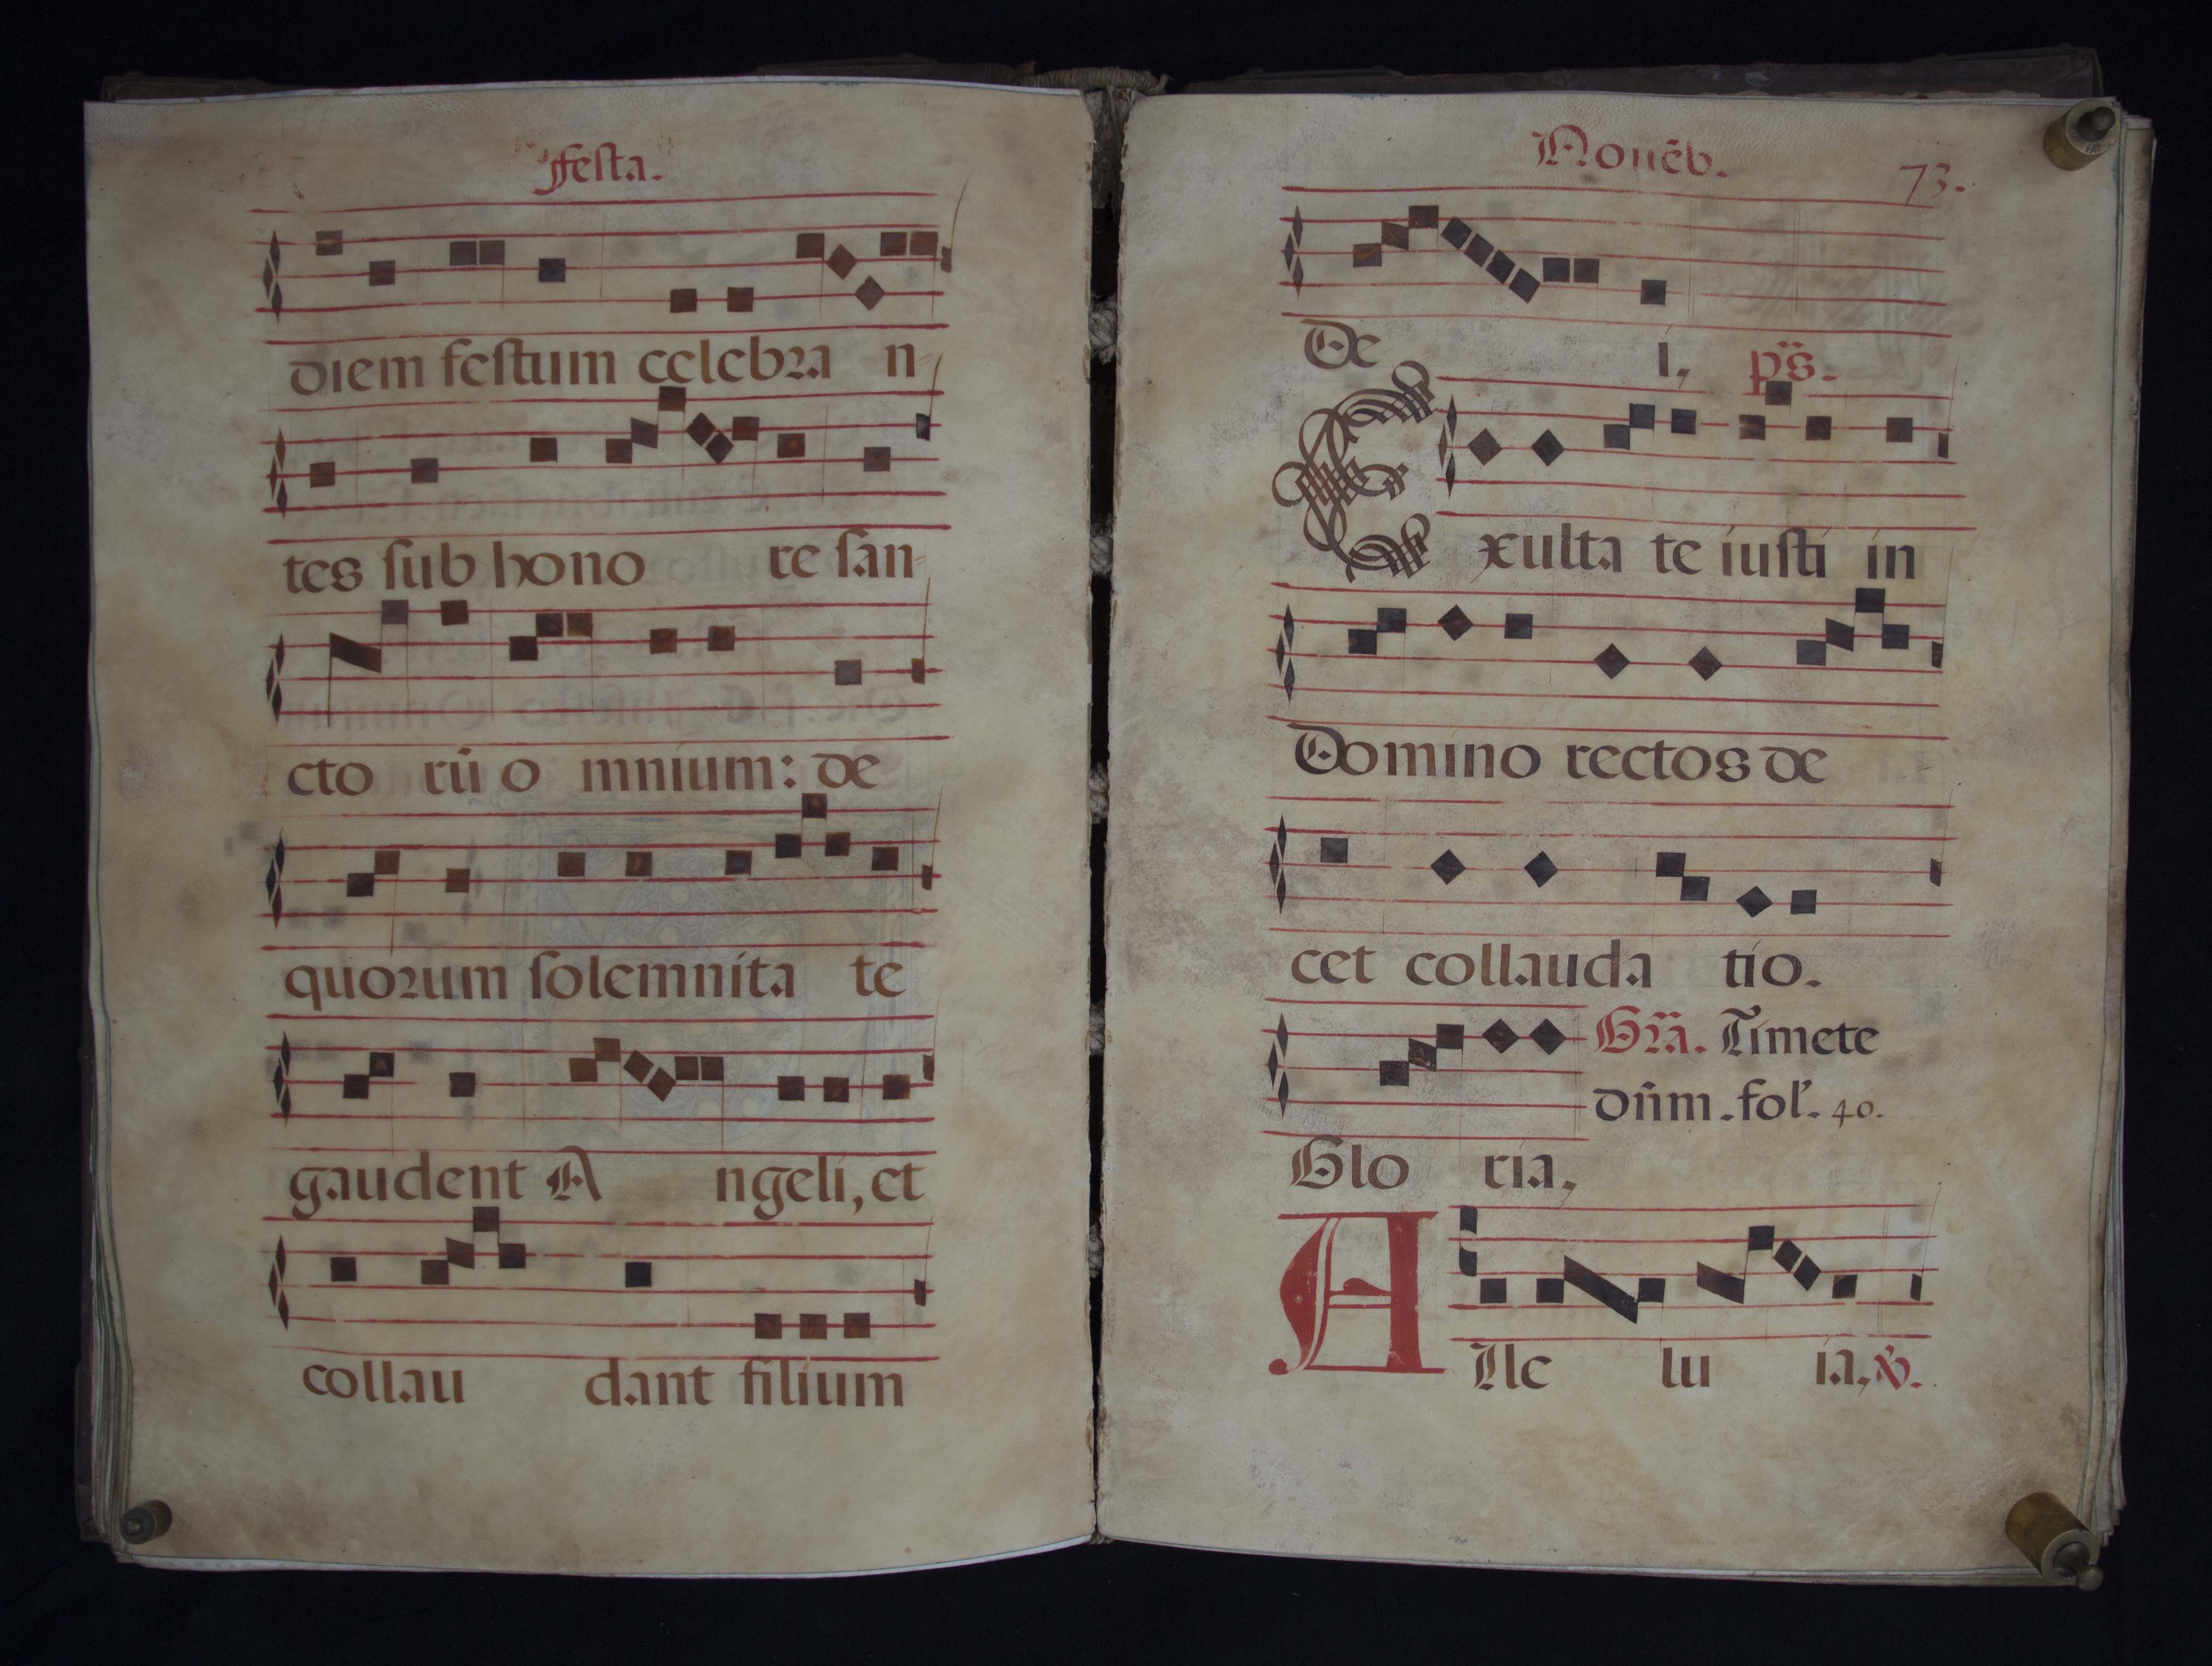 Festa.
diem festum celebra n-
tes sub hono re san-
cto rū o mnium: de
quorum solemnita te
gaudent A ngeli, et
collau dant filium
Nouēb. 73.
De i, ps.
Exulta te iusti in
Domino rectos de
cet collauda tio.
Grā. Timete
dn̄m. fol. 40.
Glo ria,
Alle lu ia, ℣.